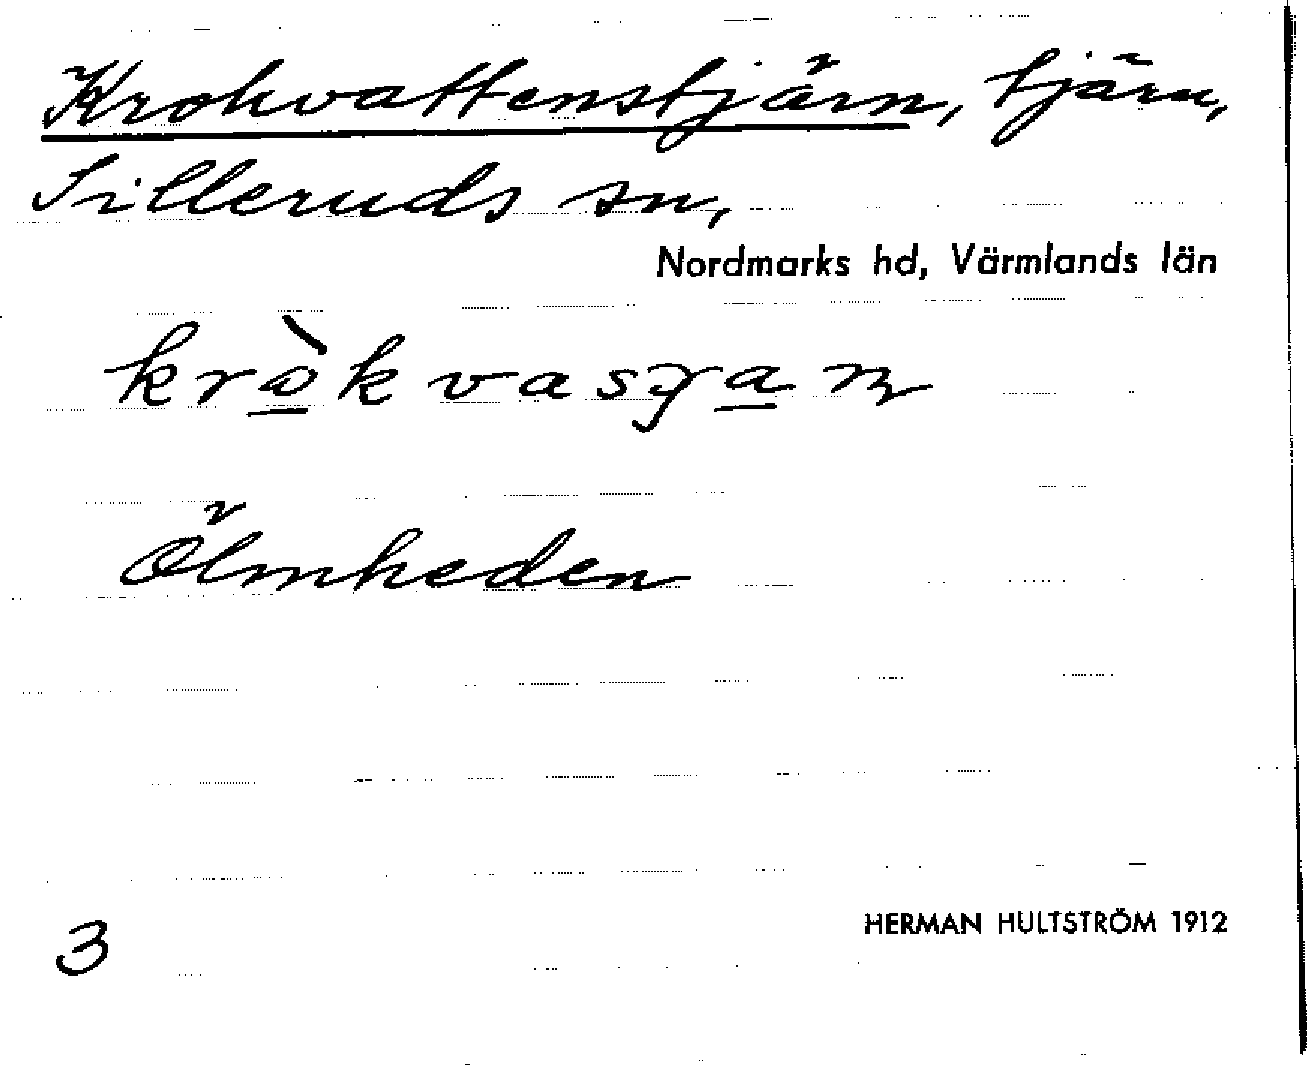 Krokvattenstjärn, tjärn,
Silleruds sn,
Nordmarks hd, Värmlands län
Ölmheden
3
HERMAN HULTSTRÖM 1912